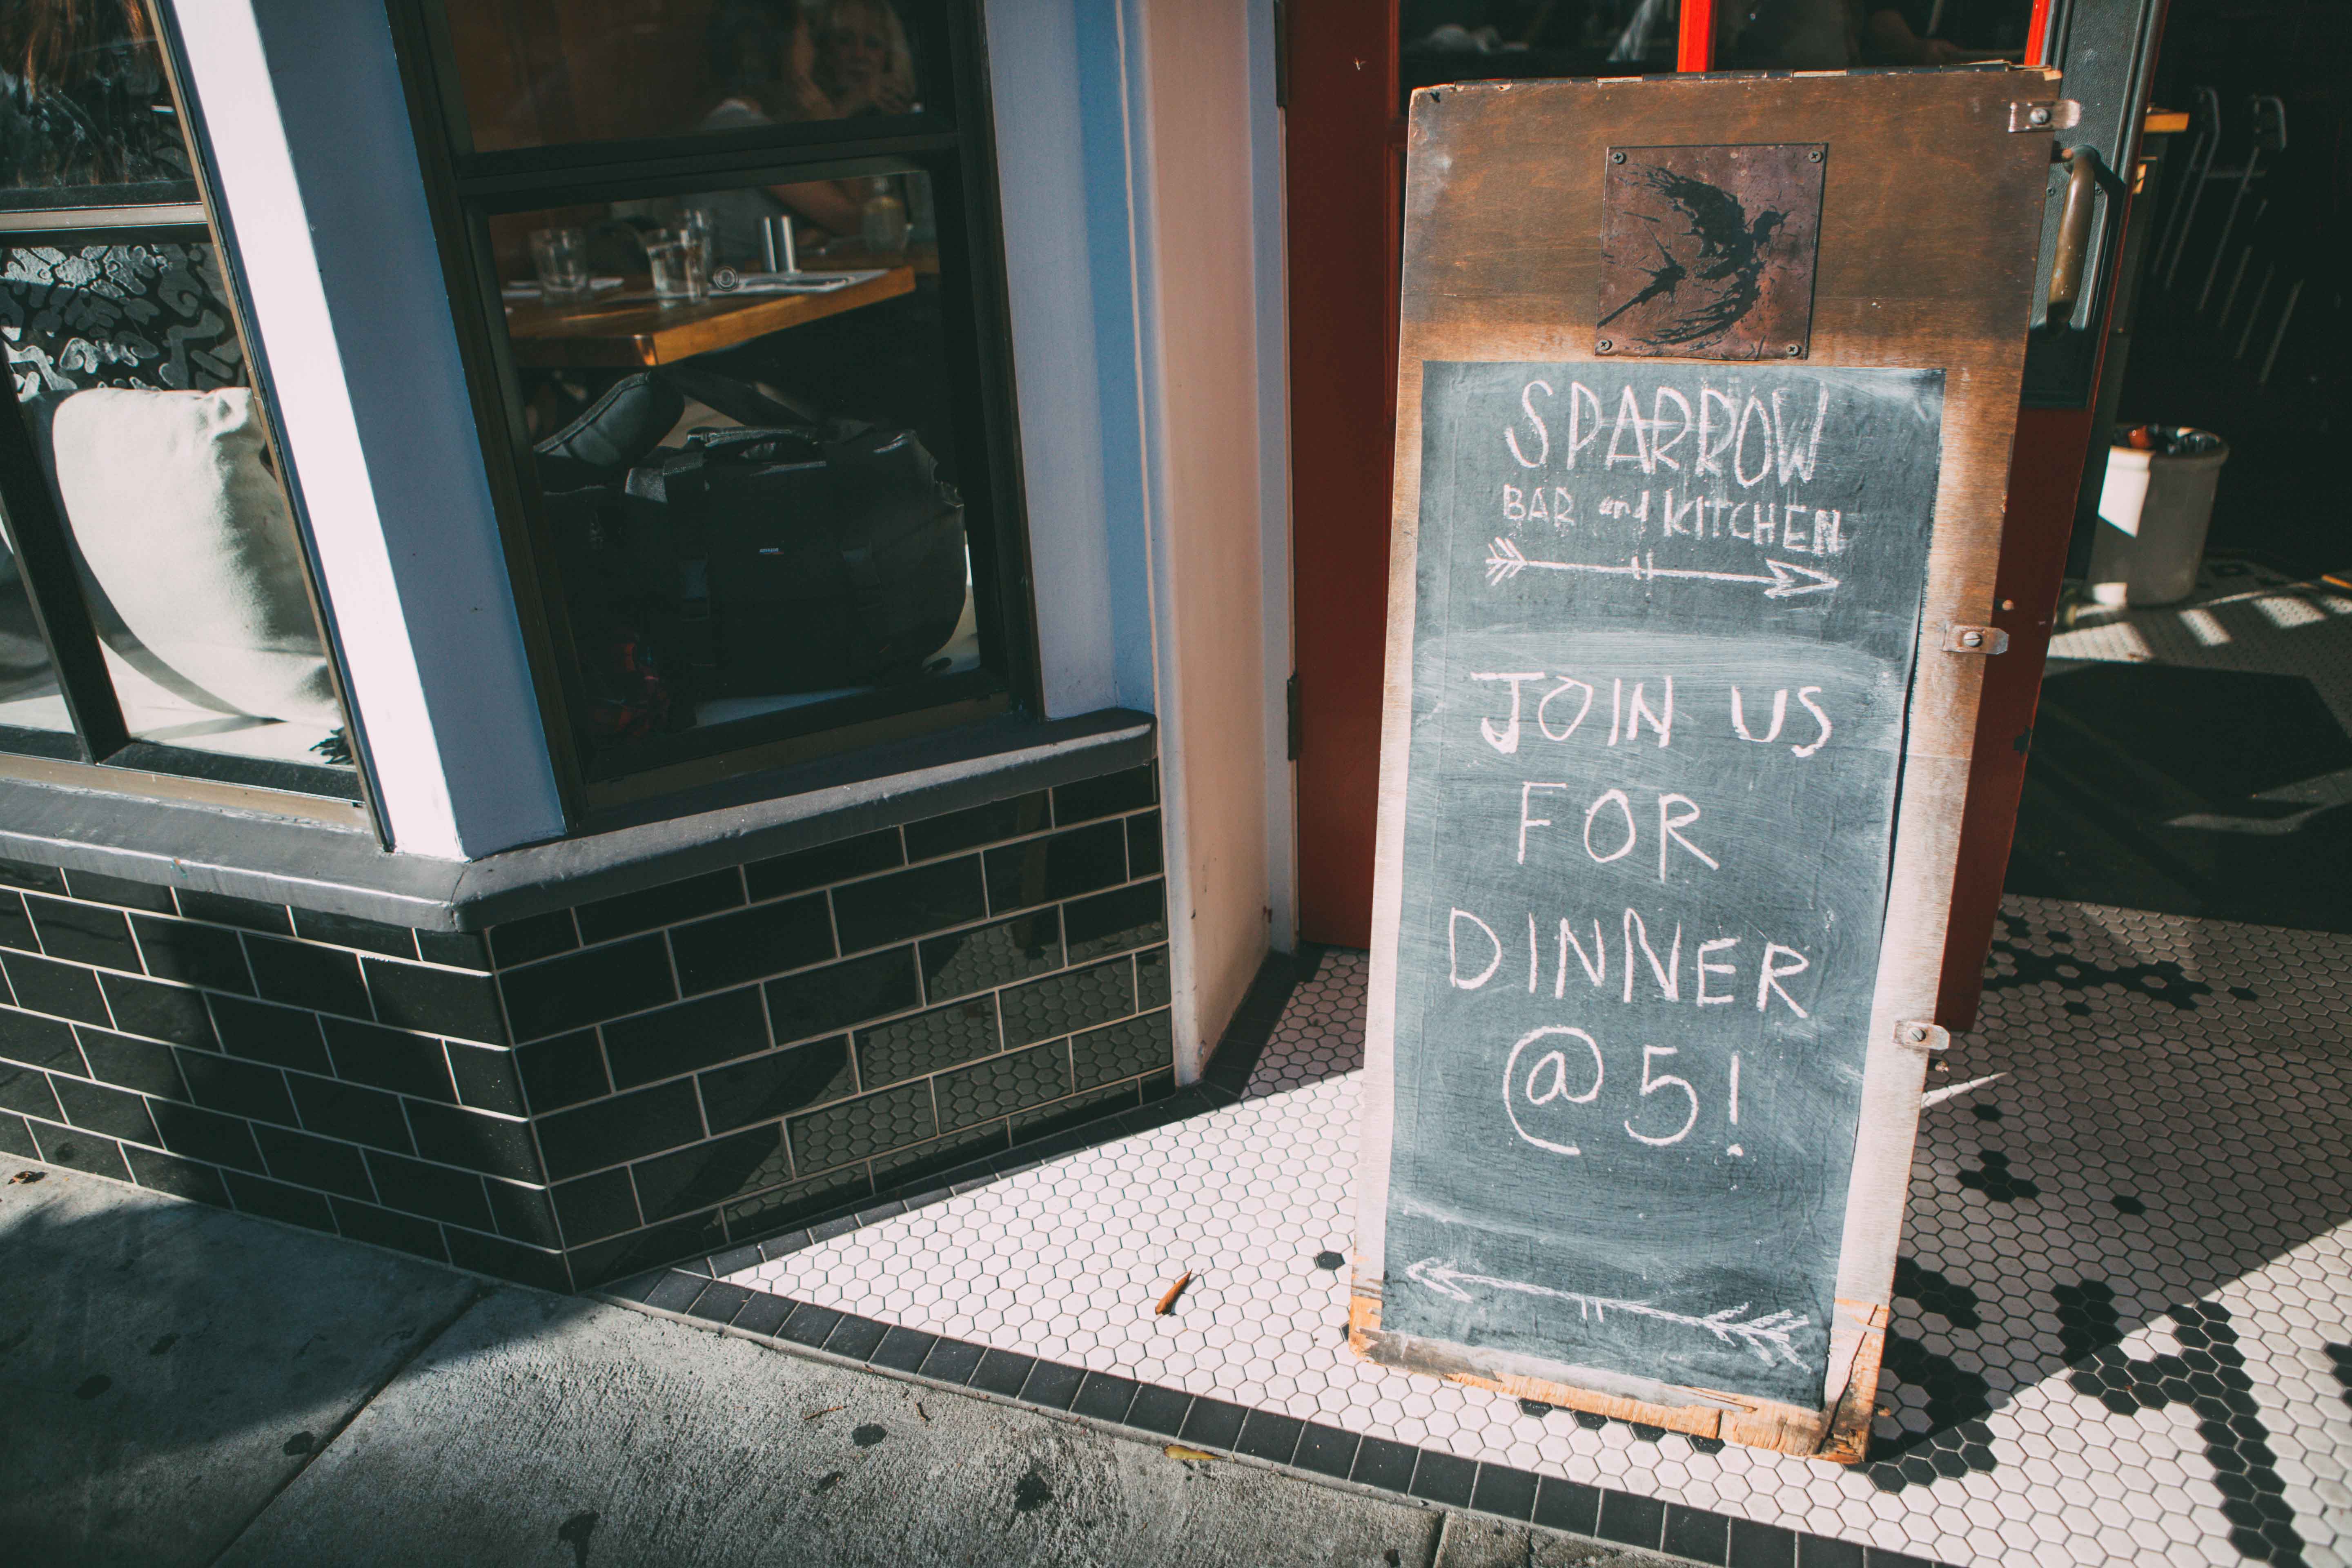 SPARROW
BAR and KITCHEN
JOIN US
FOR
DINNER
@5!
amazon